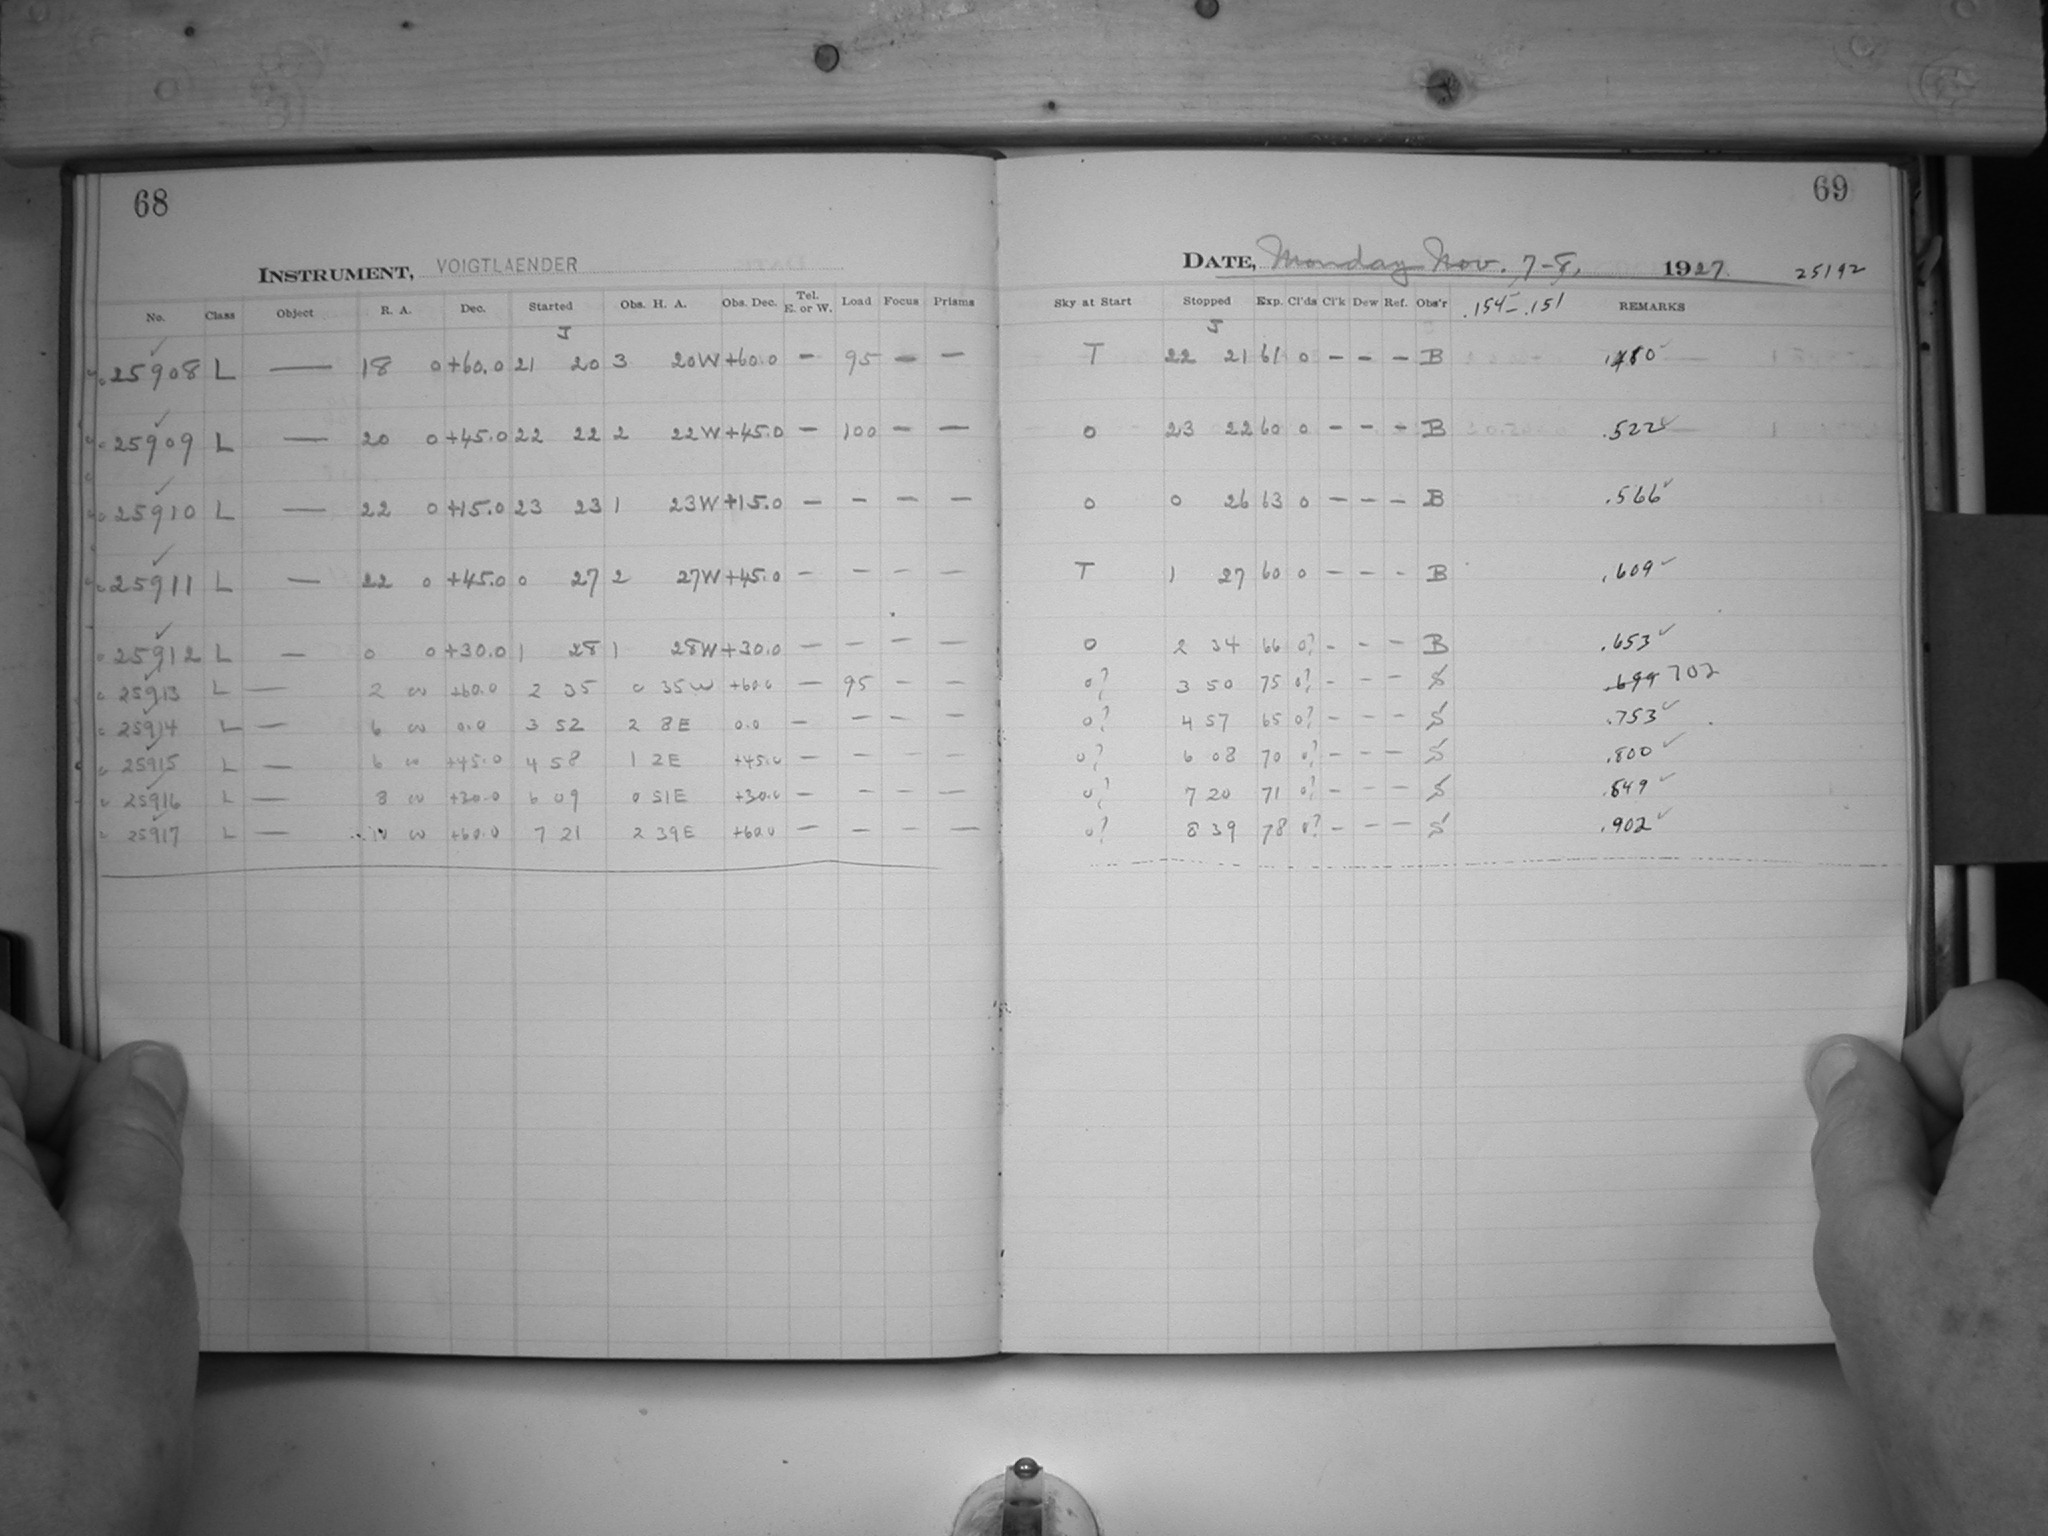 68
INSTRUMENT, VOIGTLAENDER
No. Class Object R. A. Dec. Started Obs. H. A. Obs. Dec. Tel. E. or W. Load Focus Prisms
J
25908 L — 18 0 +60.0 21 20 3 20W +60.0 — 95 — —
25909 L — 20 0 +45.0 22 22 2 22W +45.0 — 100 — —
25910 L — 22 0 +15.0 23 23 1 23W +15.0 — — — —
25911 L — 22 0 +45.0 0 27 2 27W +45.0 — — — —
25912 L — 0 0 +30.0 1 28 1 28W +30.0 — — — —
25913 L — 2 00 +60.0 2 35 0 35W +60.0 — 95 — —
25914 L — 6 00 0.0 3 52 2 8E 0.0 — — — —
25915 L — 6 00 +45.0 4 58 1 2E +45.0 — — — —
25916 L — 8 00 +30.0 6 09 0 51E +30.0 — — — —
25917 L — 10 00 +60.0 7 21 2 39E +60.0 — — — —
69
DATE, Monday Nov. 7-8, 1927 25192
Sky at Start Stopped Exp. Cl'ds Cl'k Dew Ref. Obs'r .154 - .151 REMARKS
J
T 22 21 61 0 — — — B .480
0 23 22 60 0 — — — B .522
0 0 26 63 0 — — — B .566
T 1 27 60 0 — — — B .609
0 2 34 66 0? — — — B .653
0? 3 50 75 0? — — — S .699 702
0? 4 57 65 0? — — — S .753
0? 6 08 70 0? — — — S .800
0? 7 20 71 0? — — — S .849
0? 8 39 78 0? — — — S .902